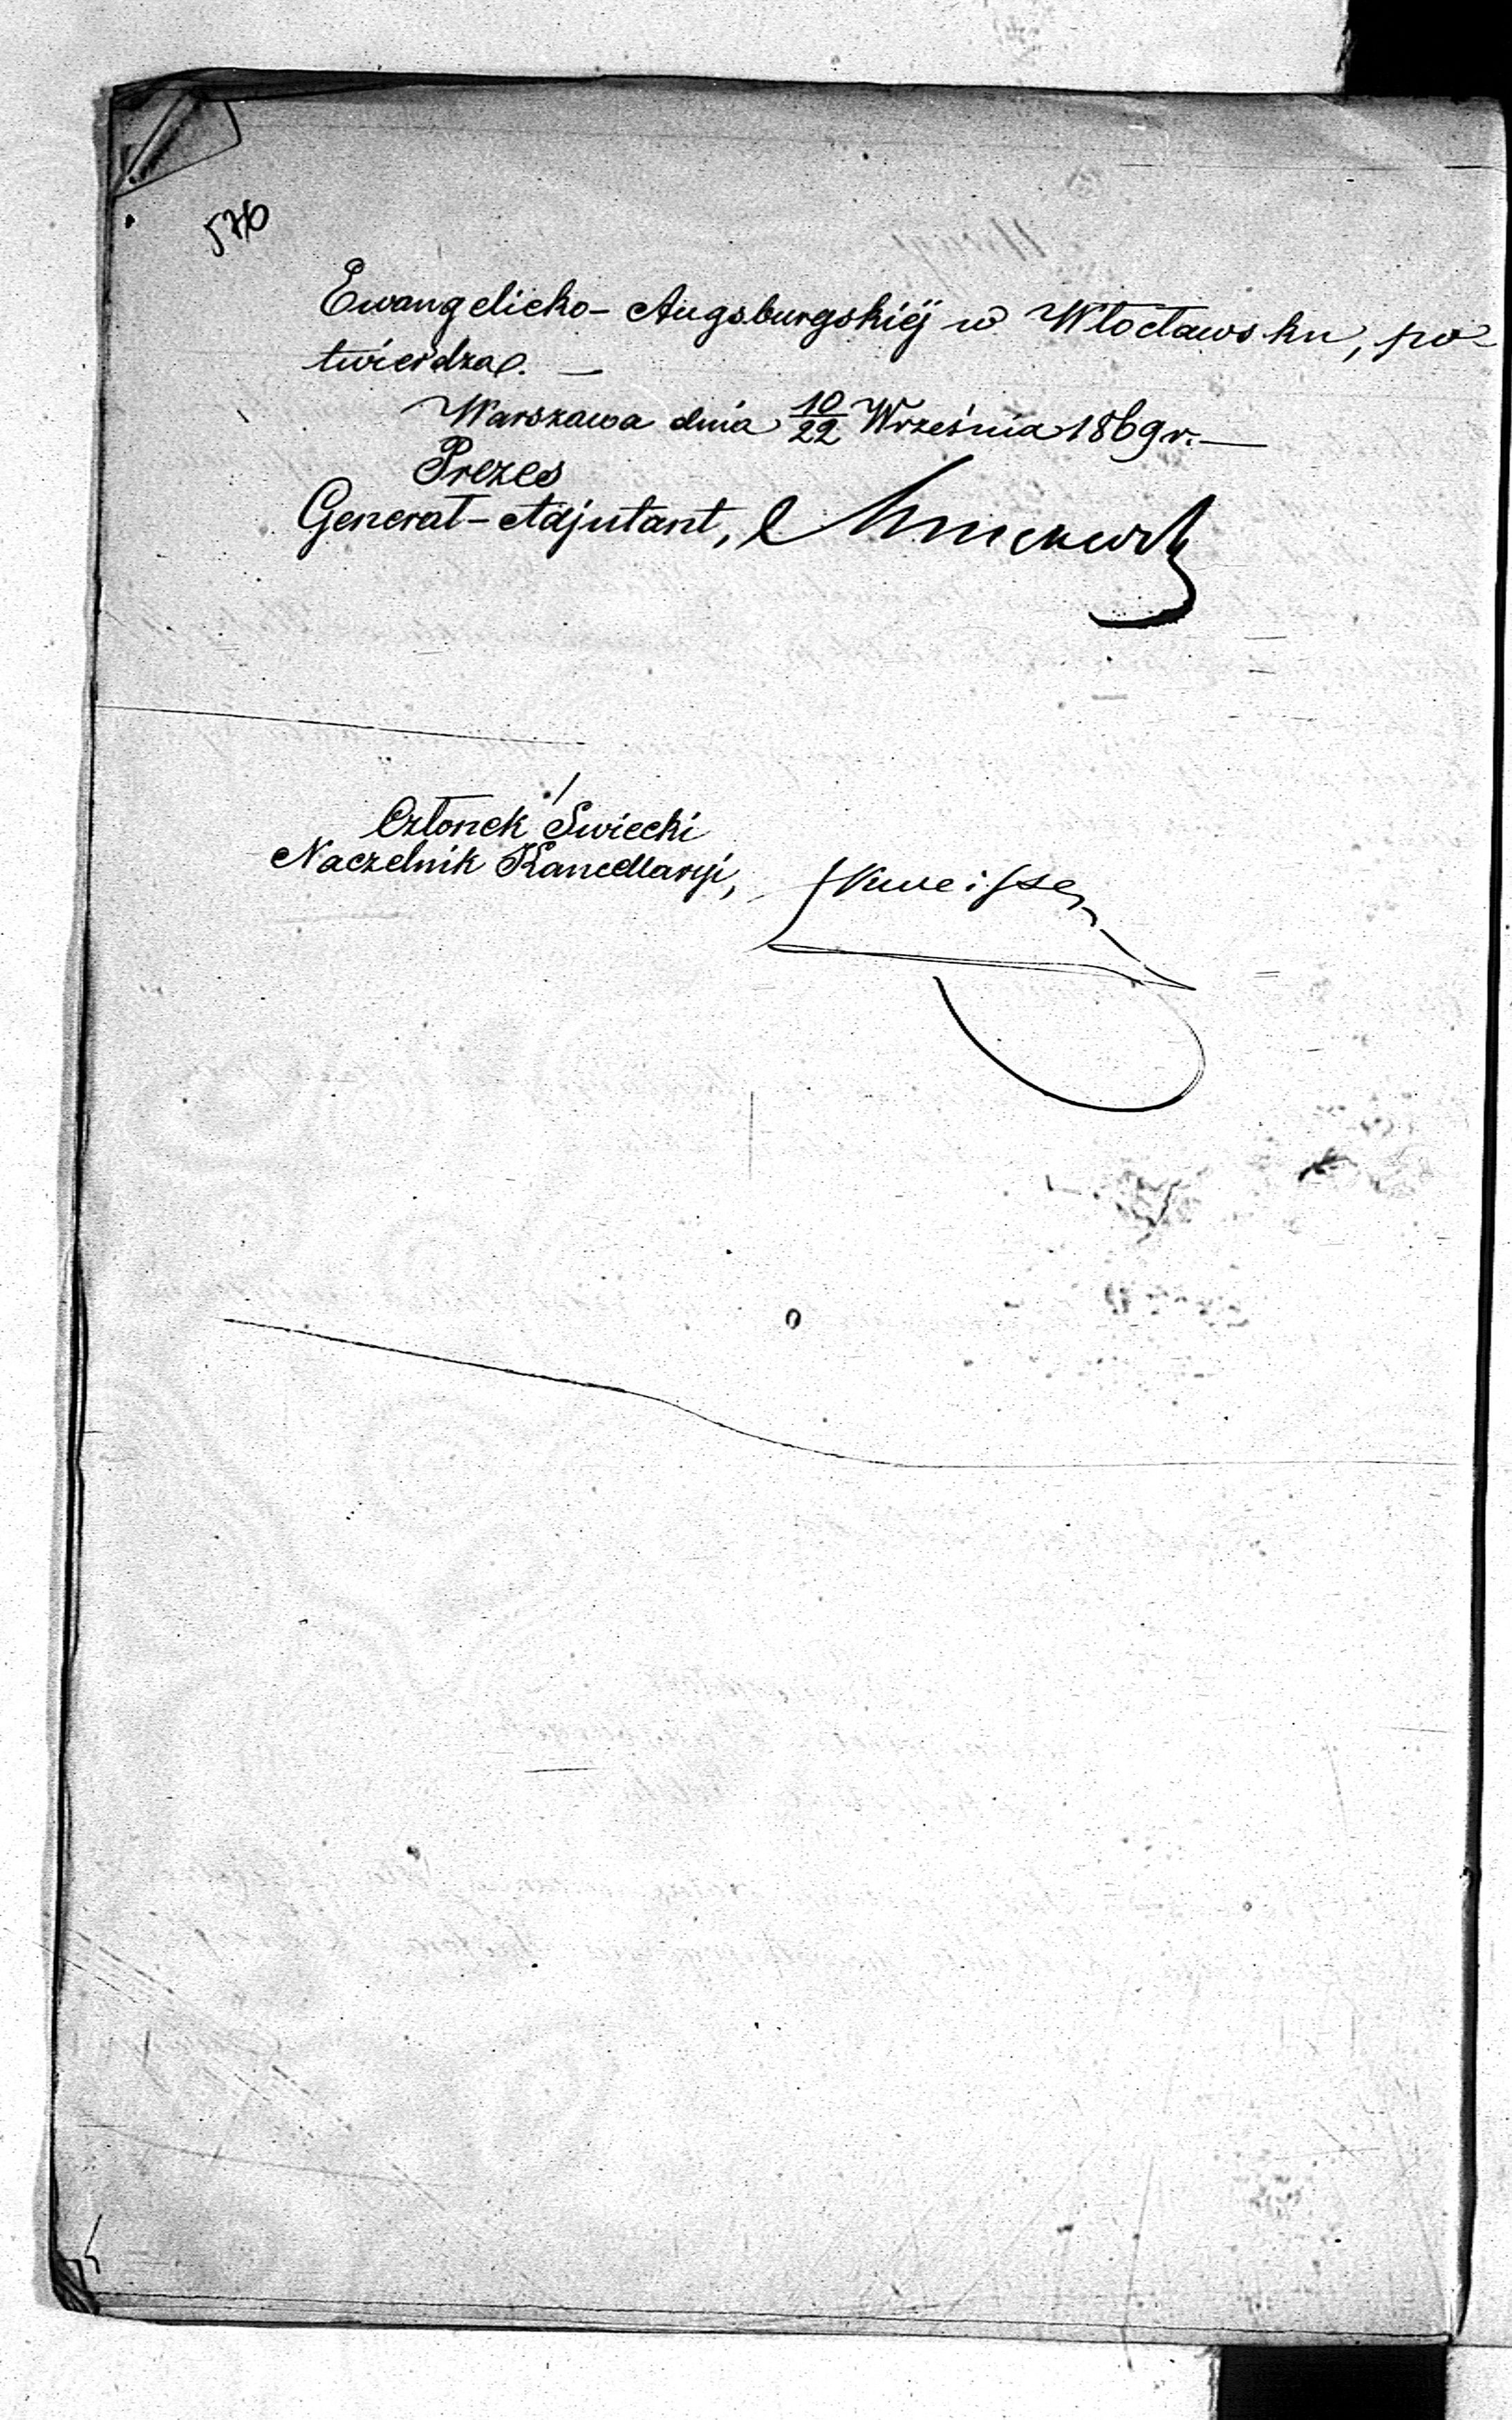 576
Ewangelicko-Augsburgskiéj w Włocławsku, po-
twierdza. —
Warszawa dnia 10/22 Września 1869 r. —
Prezes
Generał-Adjutant,
Członek Świecki
Naczelnik Kancellaryi,